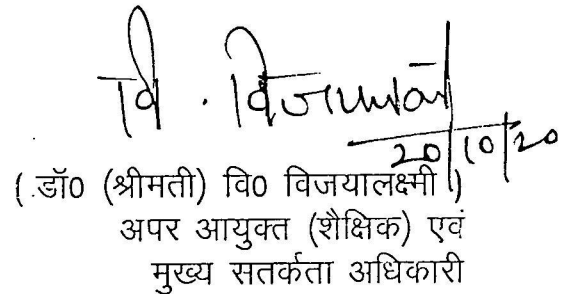 वि. विजयालक्ष्मी
20/10/20
(डॉ0 (श्रीमती) वि0 विजयालक्ष्मी)
अपर आयुक्त (शैक्षिक) एवं
मुख्य सतर्कता अधिकारी